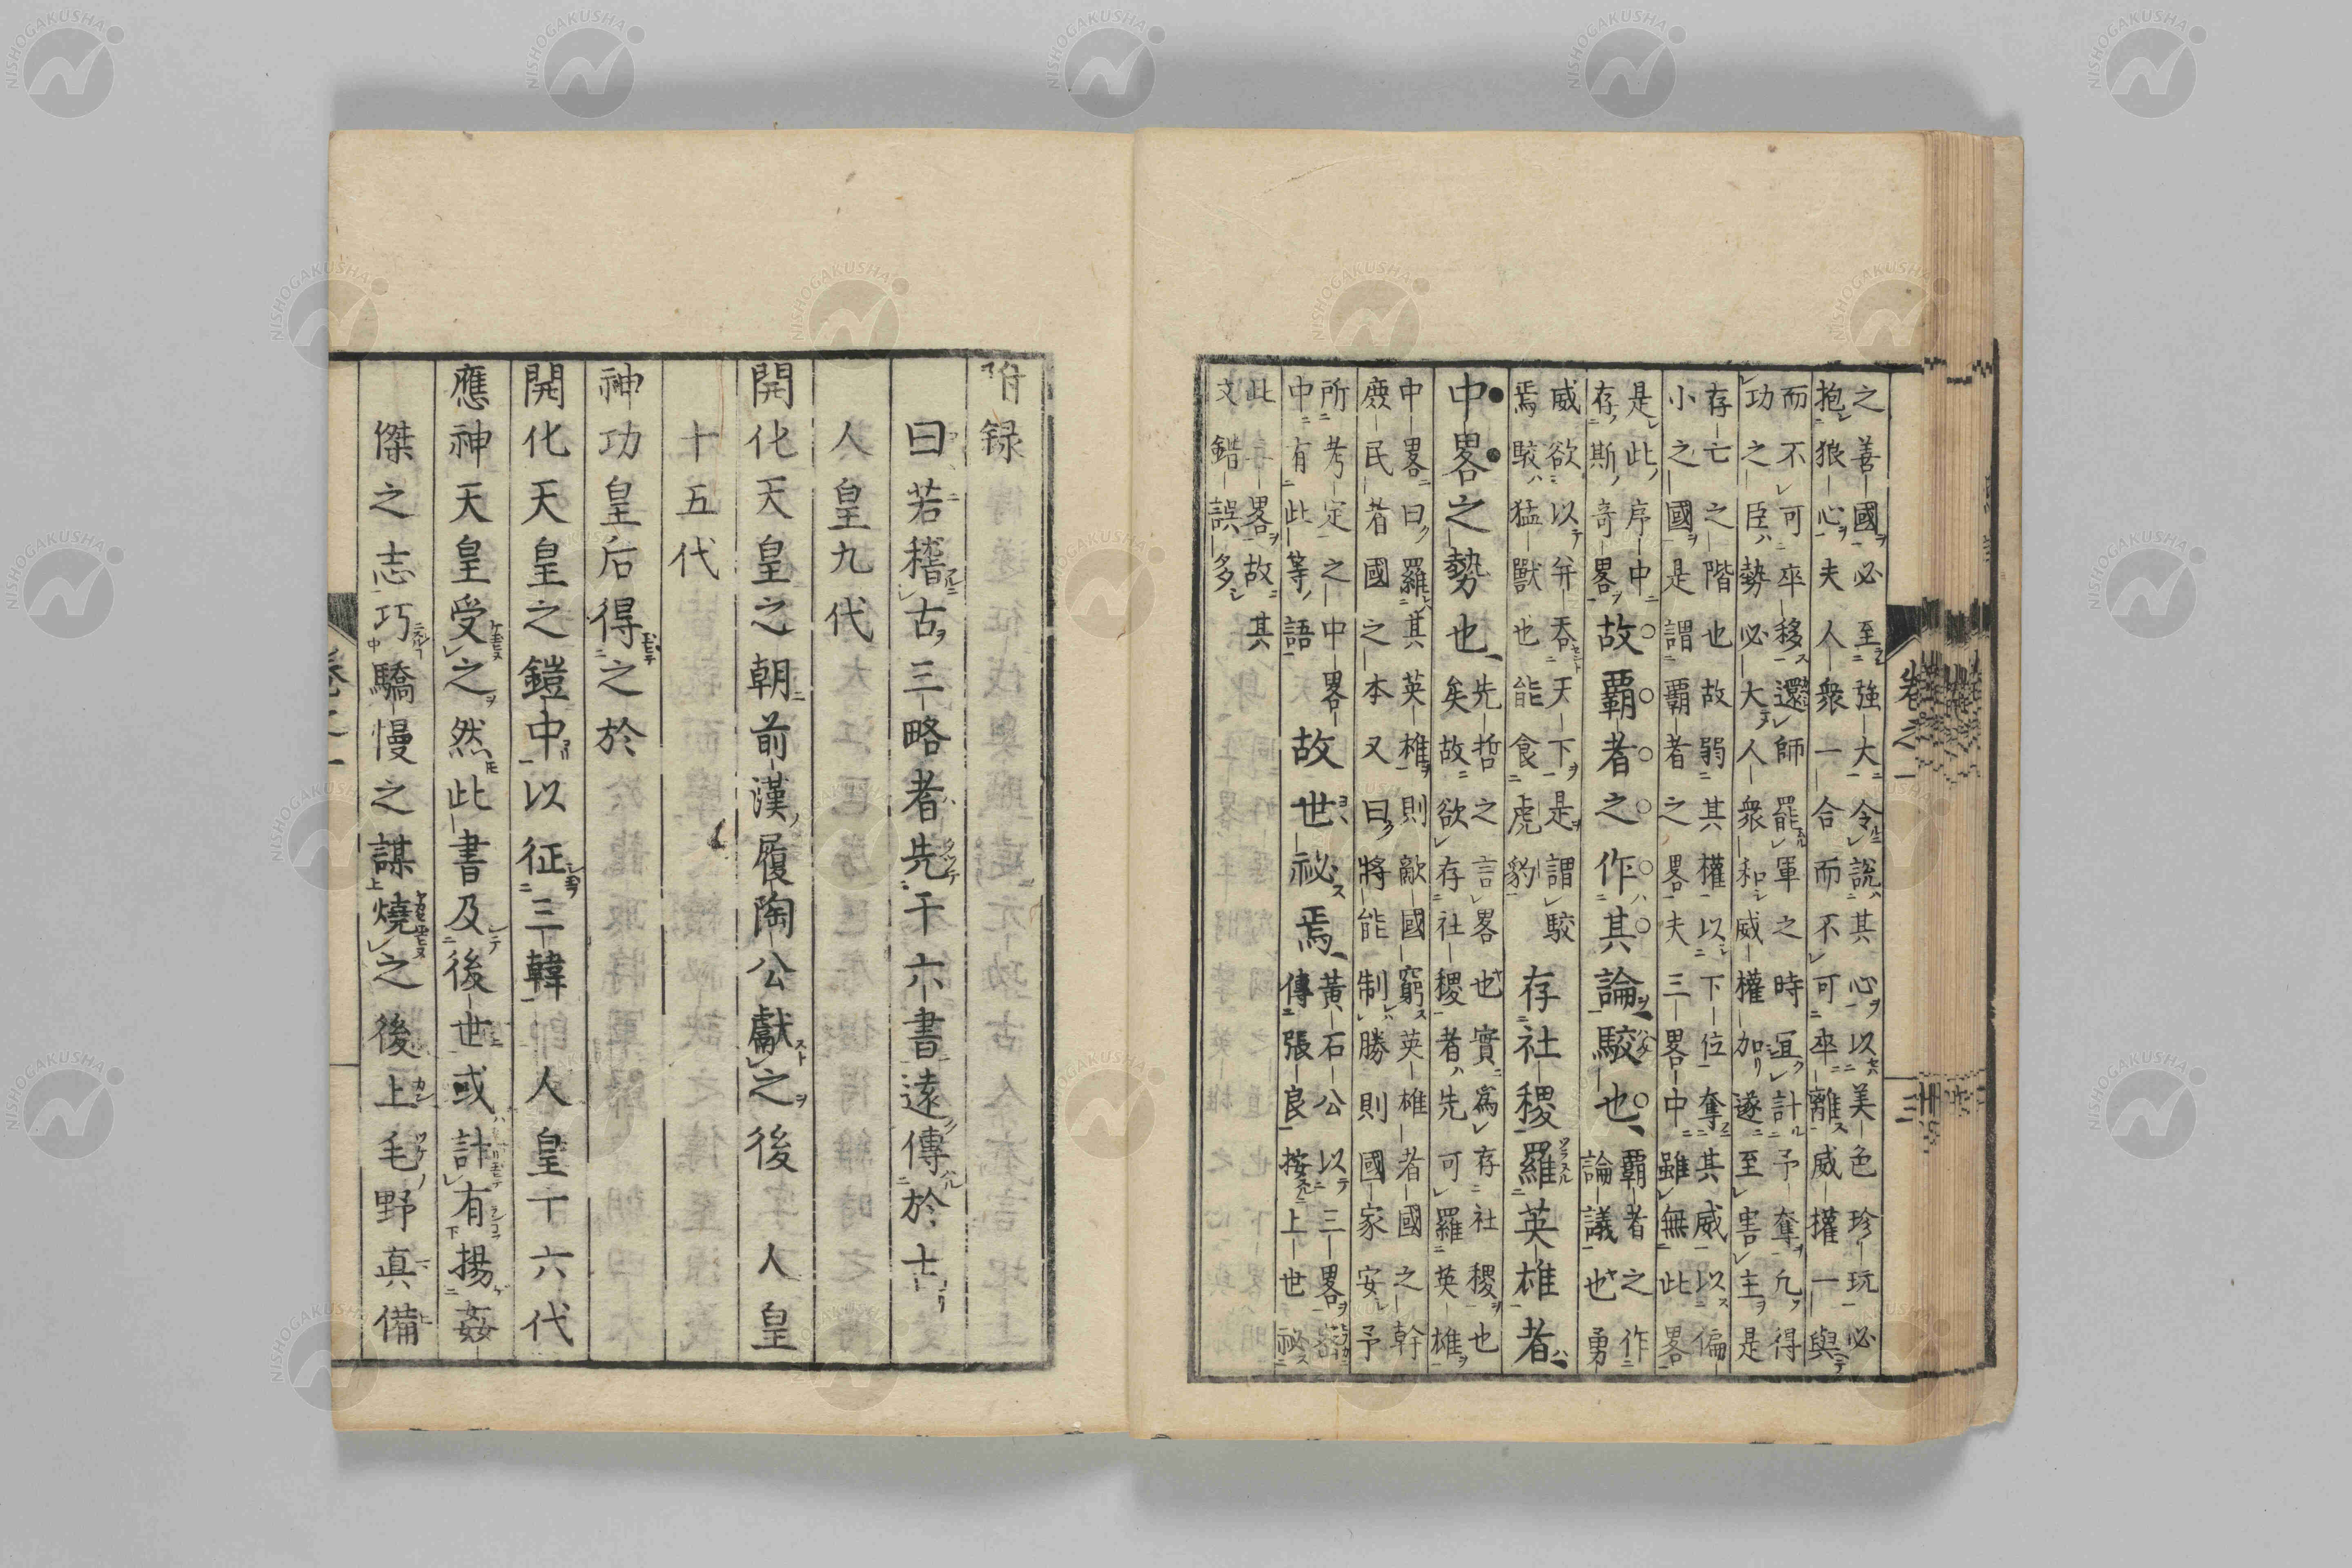 卷之一
三
之善國必至強大令說其心以美色珍玩必
抱狼心夫人衆一合而不可卒離威權一與
而不可卒移還師罷軍之時宜計予奪允得
功之臣勢必大人衆和威權加遂至害主是
存亡之階也故弱其權以下位奪其威以偏
小之國是謂覇者之畧夫三畧中雖無此畧
是此序中
存斯奇畧
故覇者之作其論駮也
覇者之作
論議也勇
威欲以弁吞天下是謂駮
焉駮猛獸也能食虎豹
存社稷羅英雄者
中畧之勢也
先哲之言畧也實爲存社稷也
矣故欲存社稷者先可羅英雄
中畧曰羅其英雄則敵國窮英雄者國之幹
民者國之本又曰將能制勝則國家安予
所考定之中畧
中有此等語
故世祕焉
黃石公以三畧
傳張良按上世祕
此畧故其
文錯誤多
錄
曰若稽古三略者先于六書遠傳於士
人皇九代
開化天皇之朝前漢履陶公獻之後人皇
十五代
神功皇后得之於
開化天皇之鎧中以征三韓人皇十六代
應神天皇受之然此書及後世或計有揚姦
傑之志巧驕慢之謀燒之後上毛野真備